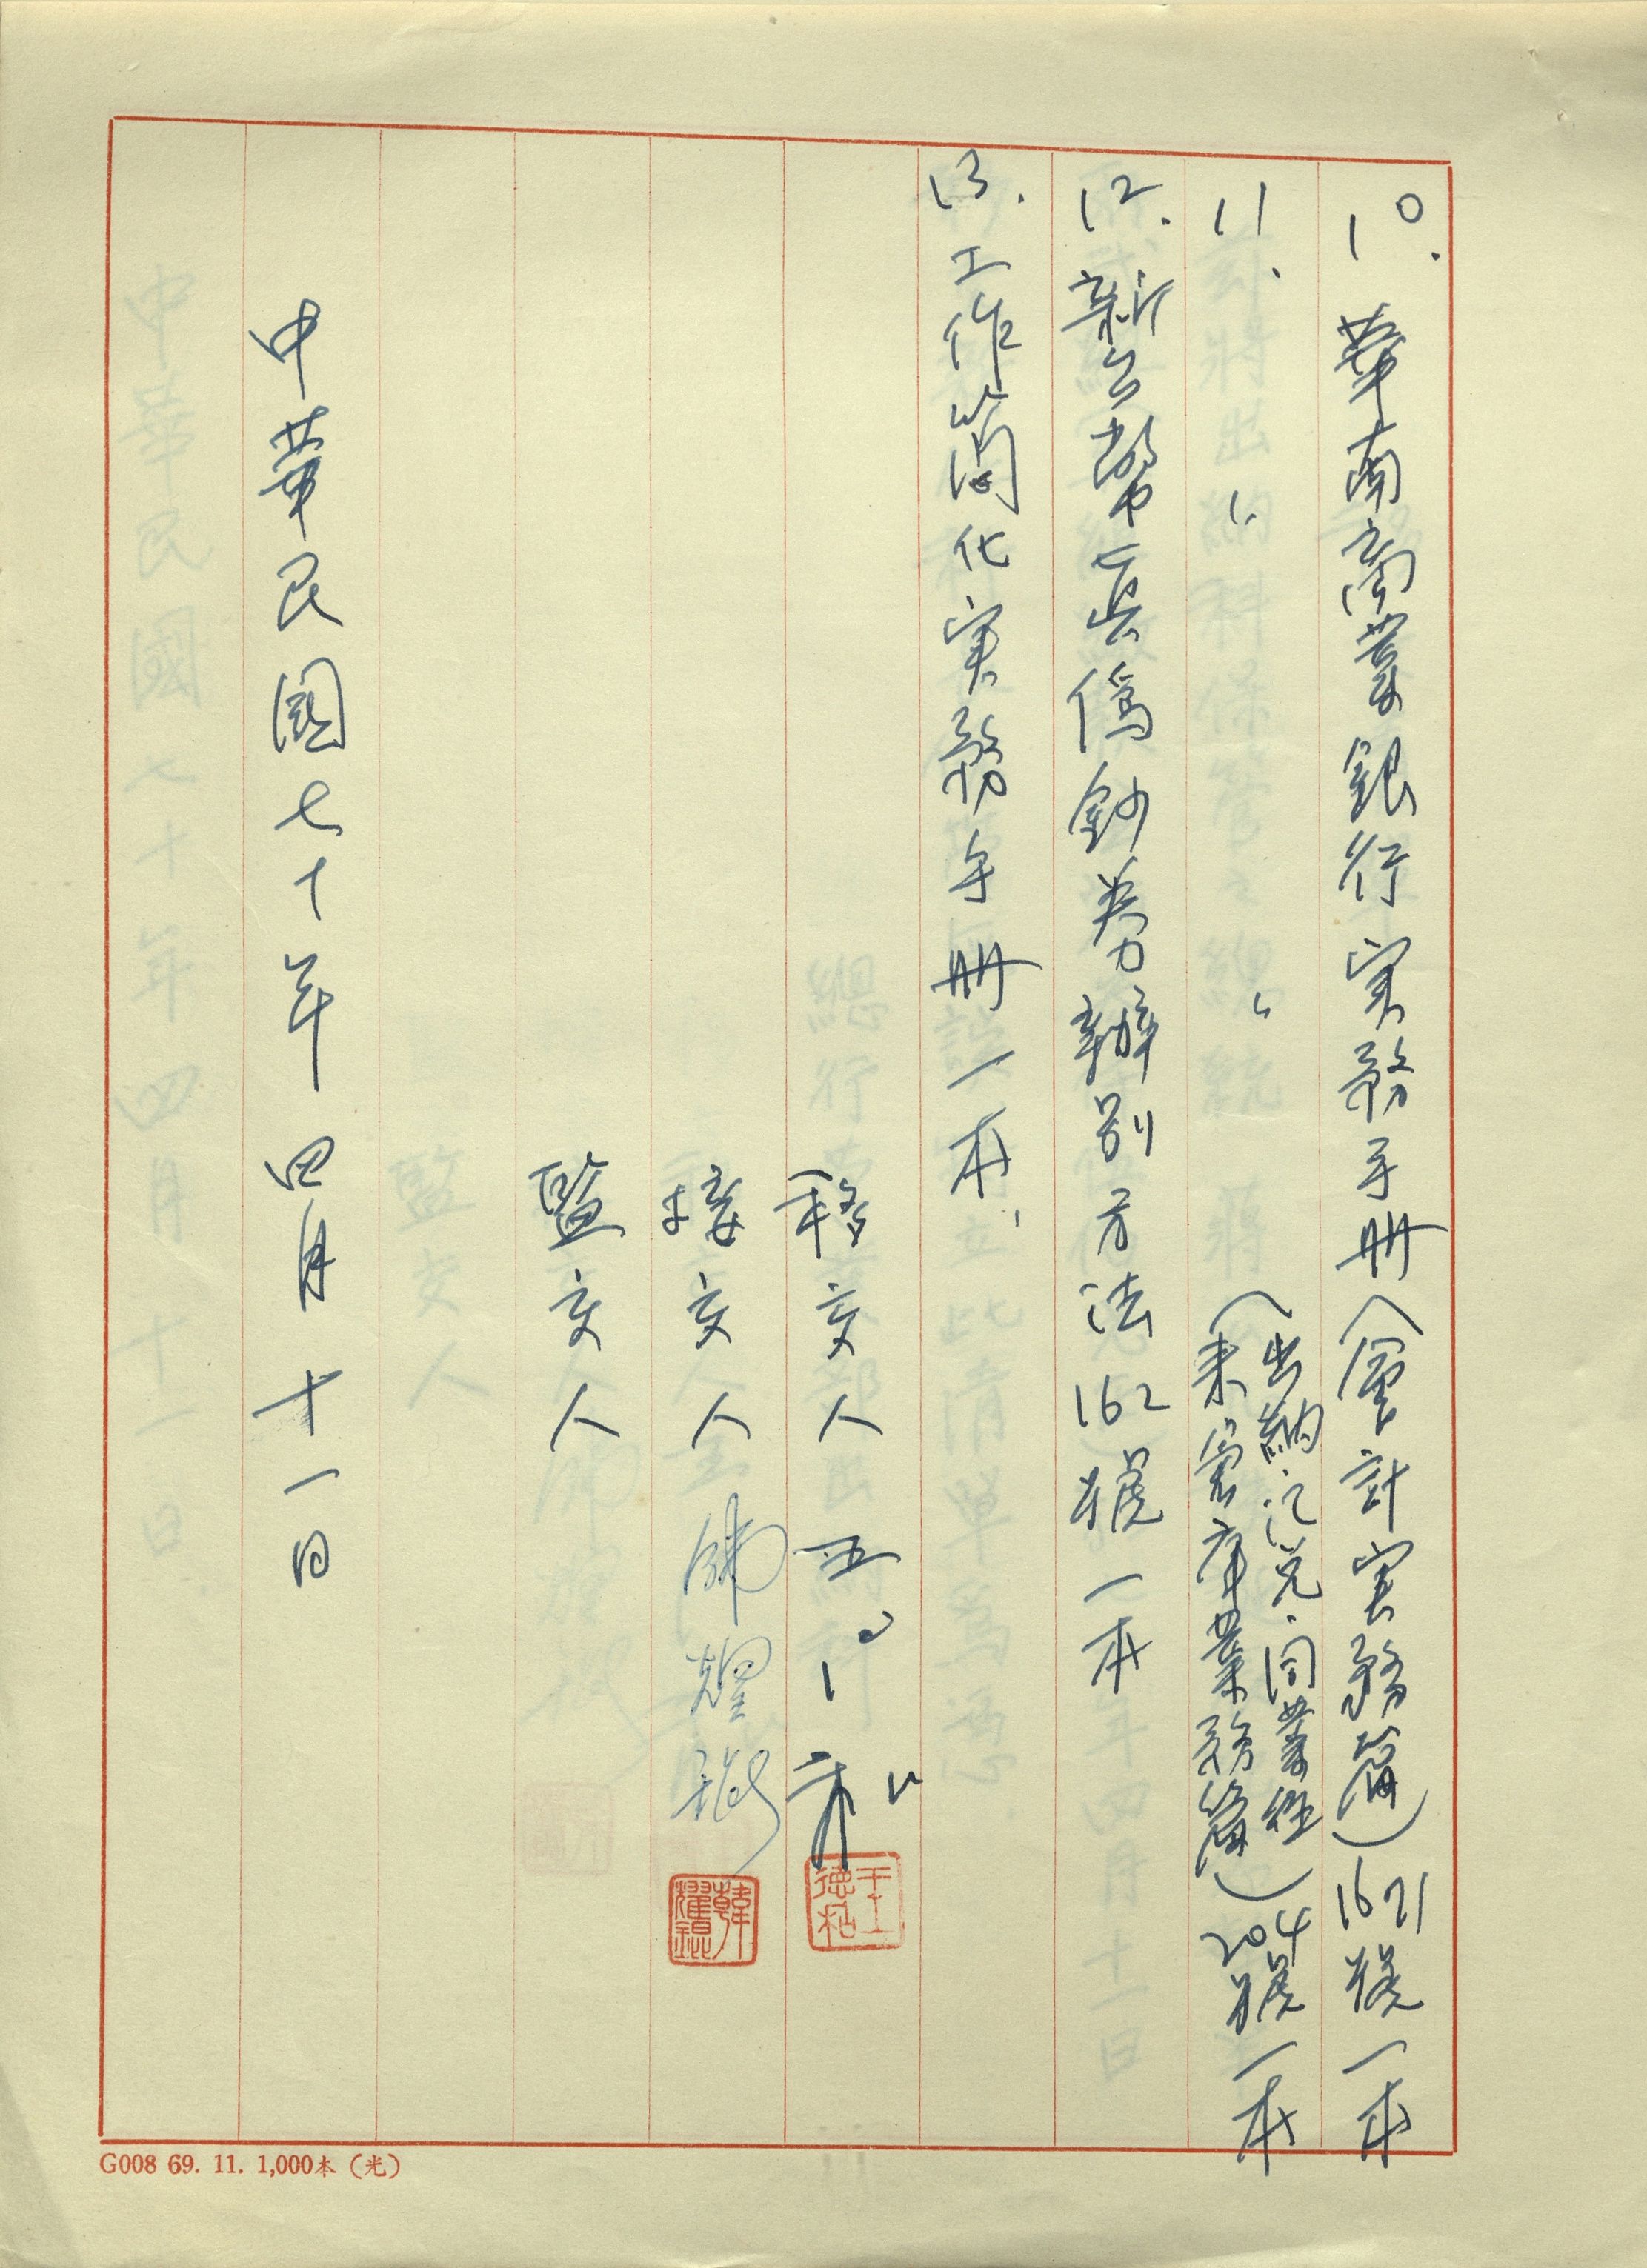 10. 華南商業銀行实務手册(會計实務篇)1621號一本
11. 〃 〃 (出納、汇兑、同業往來、寄庫業務篇)204號一本
12. 新台幣真偽鈔券辦别方法162號一本
13. 工作简化实務手册一本.
移交人
王德枯
接交人
韓耀錕
監交人
中華民國七十年四月十一日
G008 69. 11. 1,000本(光)